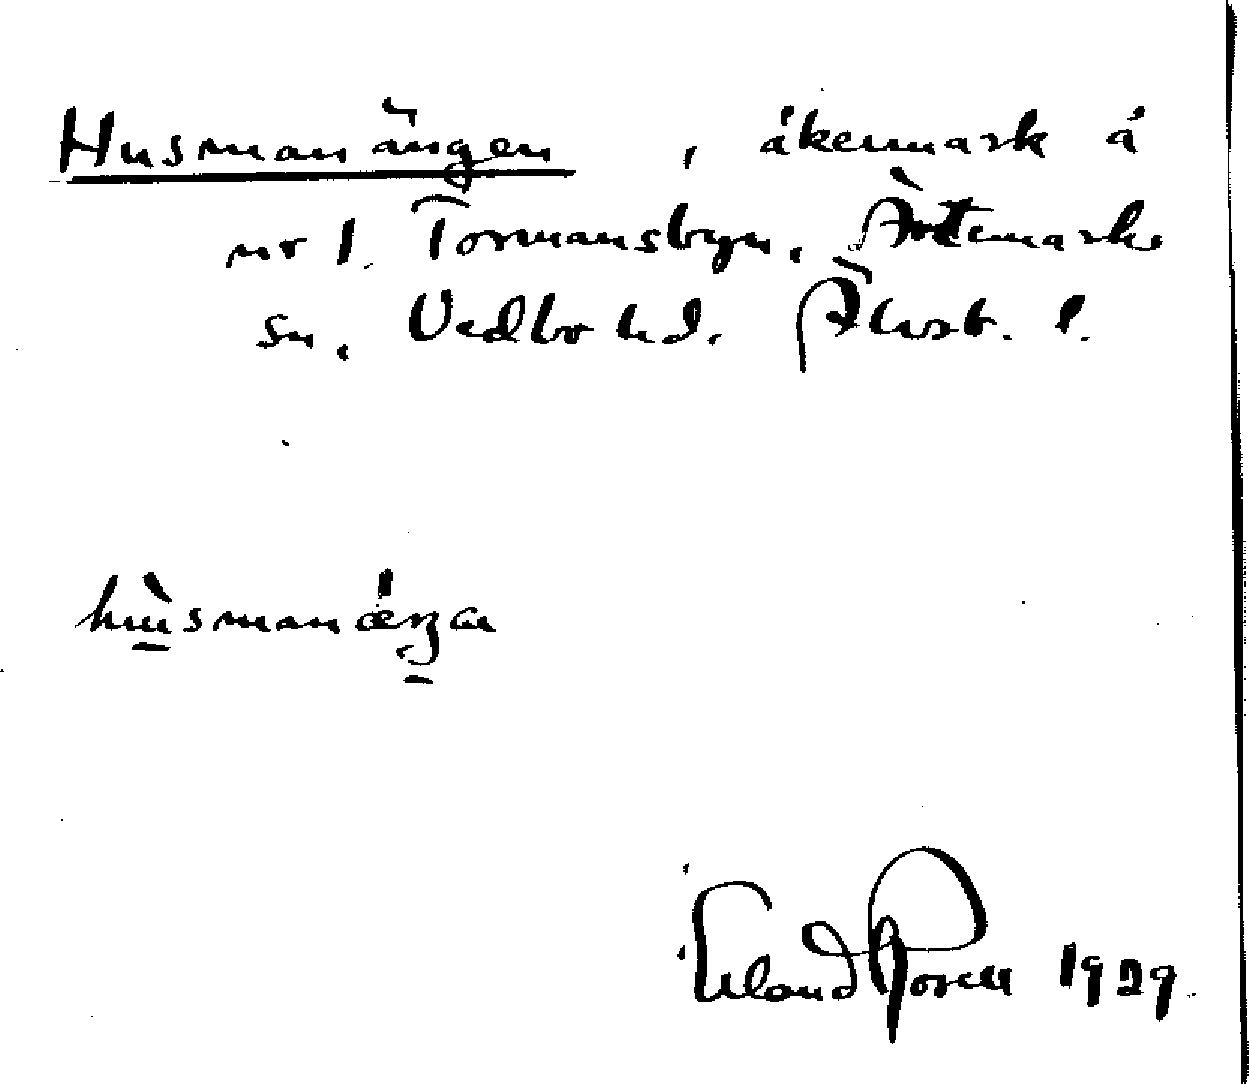 Husmanängen, åkermark å
nr 1. Tormansbyn, Ärtemarks
sn, Vedbo hd. Älvsb. l.
hùsmanǽŋan
Erland Rosell 1929.